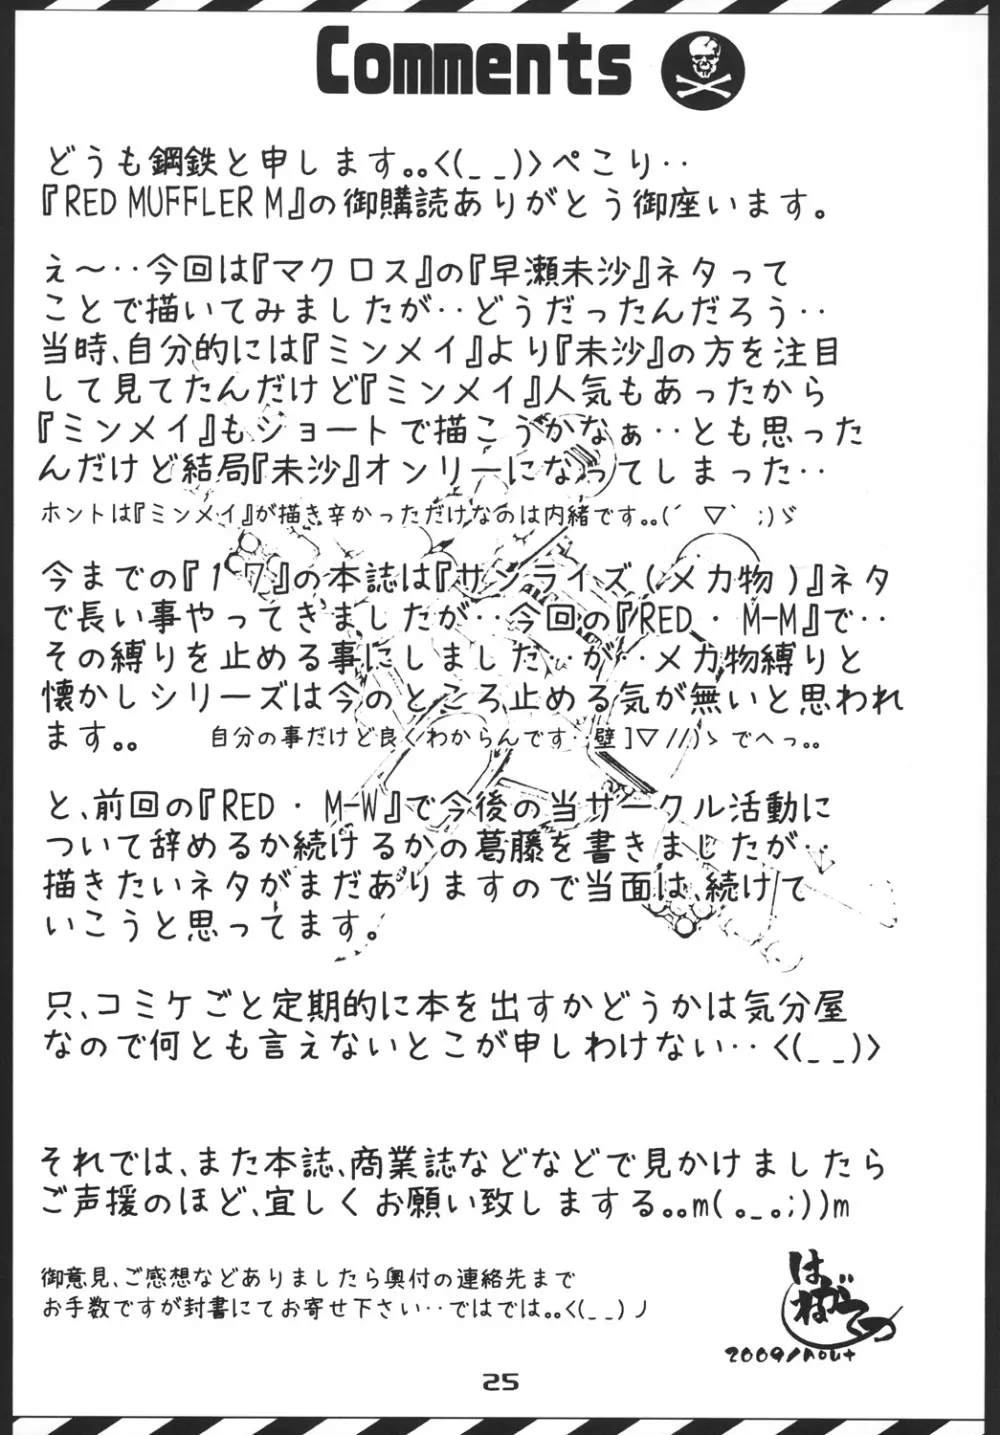 Comments
どうも鋼鉄と申します｡｡<(_ _)>ぺこり‥
『RED MUFFLER M』の御購読ありがとう御座います。
え～‥今回は『マクロス』の『早瀬未沙』ネタって
ことで描いてみましたが‥どうだったんだろう‥
当時､自分的には『ミンメイ』より『未沙』の方を注目
して見てたんだけど『ミンメイ』人気もあったから
『ミンメイ』もショートで描こうかなぁ‥とも思った
んだけど結局『未沙』オンリーになってしまった‥
ホントは『ミンメイ』が描き辛かっただけなのは内緒です｡｡(´ ▽` ;)ゞ
今までの『17』の本誌は『サンライズ(メカ物)』ネタ
で長い事やってきましたが‥今回の『RED ・ M-M』で‥
その縛りを止める事にしました‥が‥メカ物縛りと
懐かしシリーズは今のところ止める気が無いと思われ
ます｡｡ 自分の事だけど良くわからんです‥壁]▽//)ゝでへっ｡｡
と､前回の『RED ・ M-W』で今後の当サークル活動に
ついて辞めるか続けるかの葛藤を書きましたが‥
描きたいネタがまだありますので当面は､続けて
いこうと思ってます。
只､コミケごと定期的に本を出すかどうかは気分屋
なので何とも言えないとこが申しわけない‥<(_ _)>
それでは､また本誌､商業誌などなどで見かけましたら
ご声援のほど､宜しくお願い致しまする｡｡m(｡_｡;))m
御意見､ご感想などありましたら奥付の連絡先まで
お手数ですが封書にてお寄せ下さい‥ではでは｡｡<(_ _)ノ
はがねてつ
2009/
25